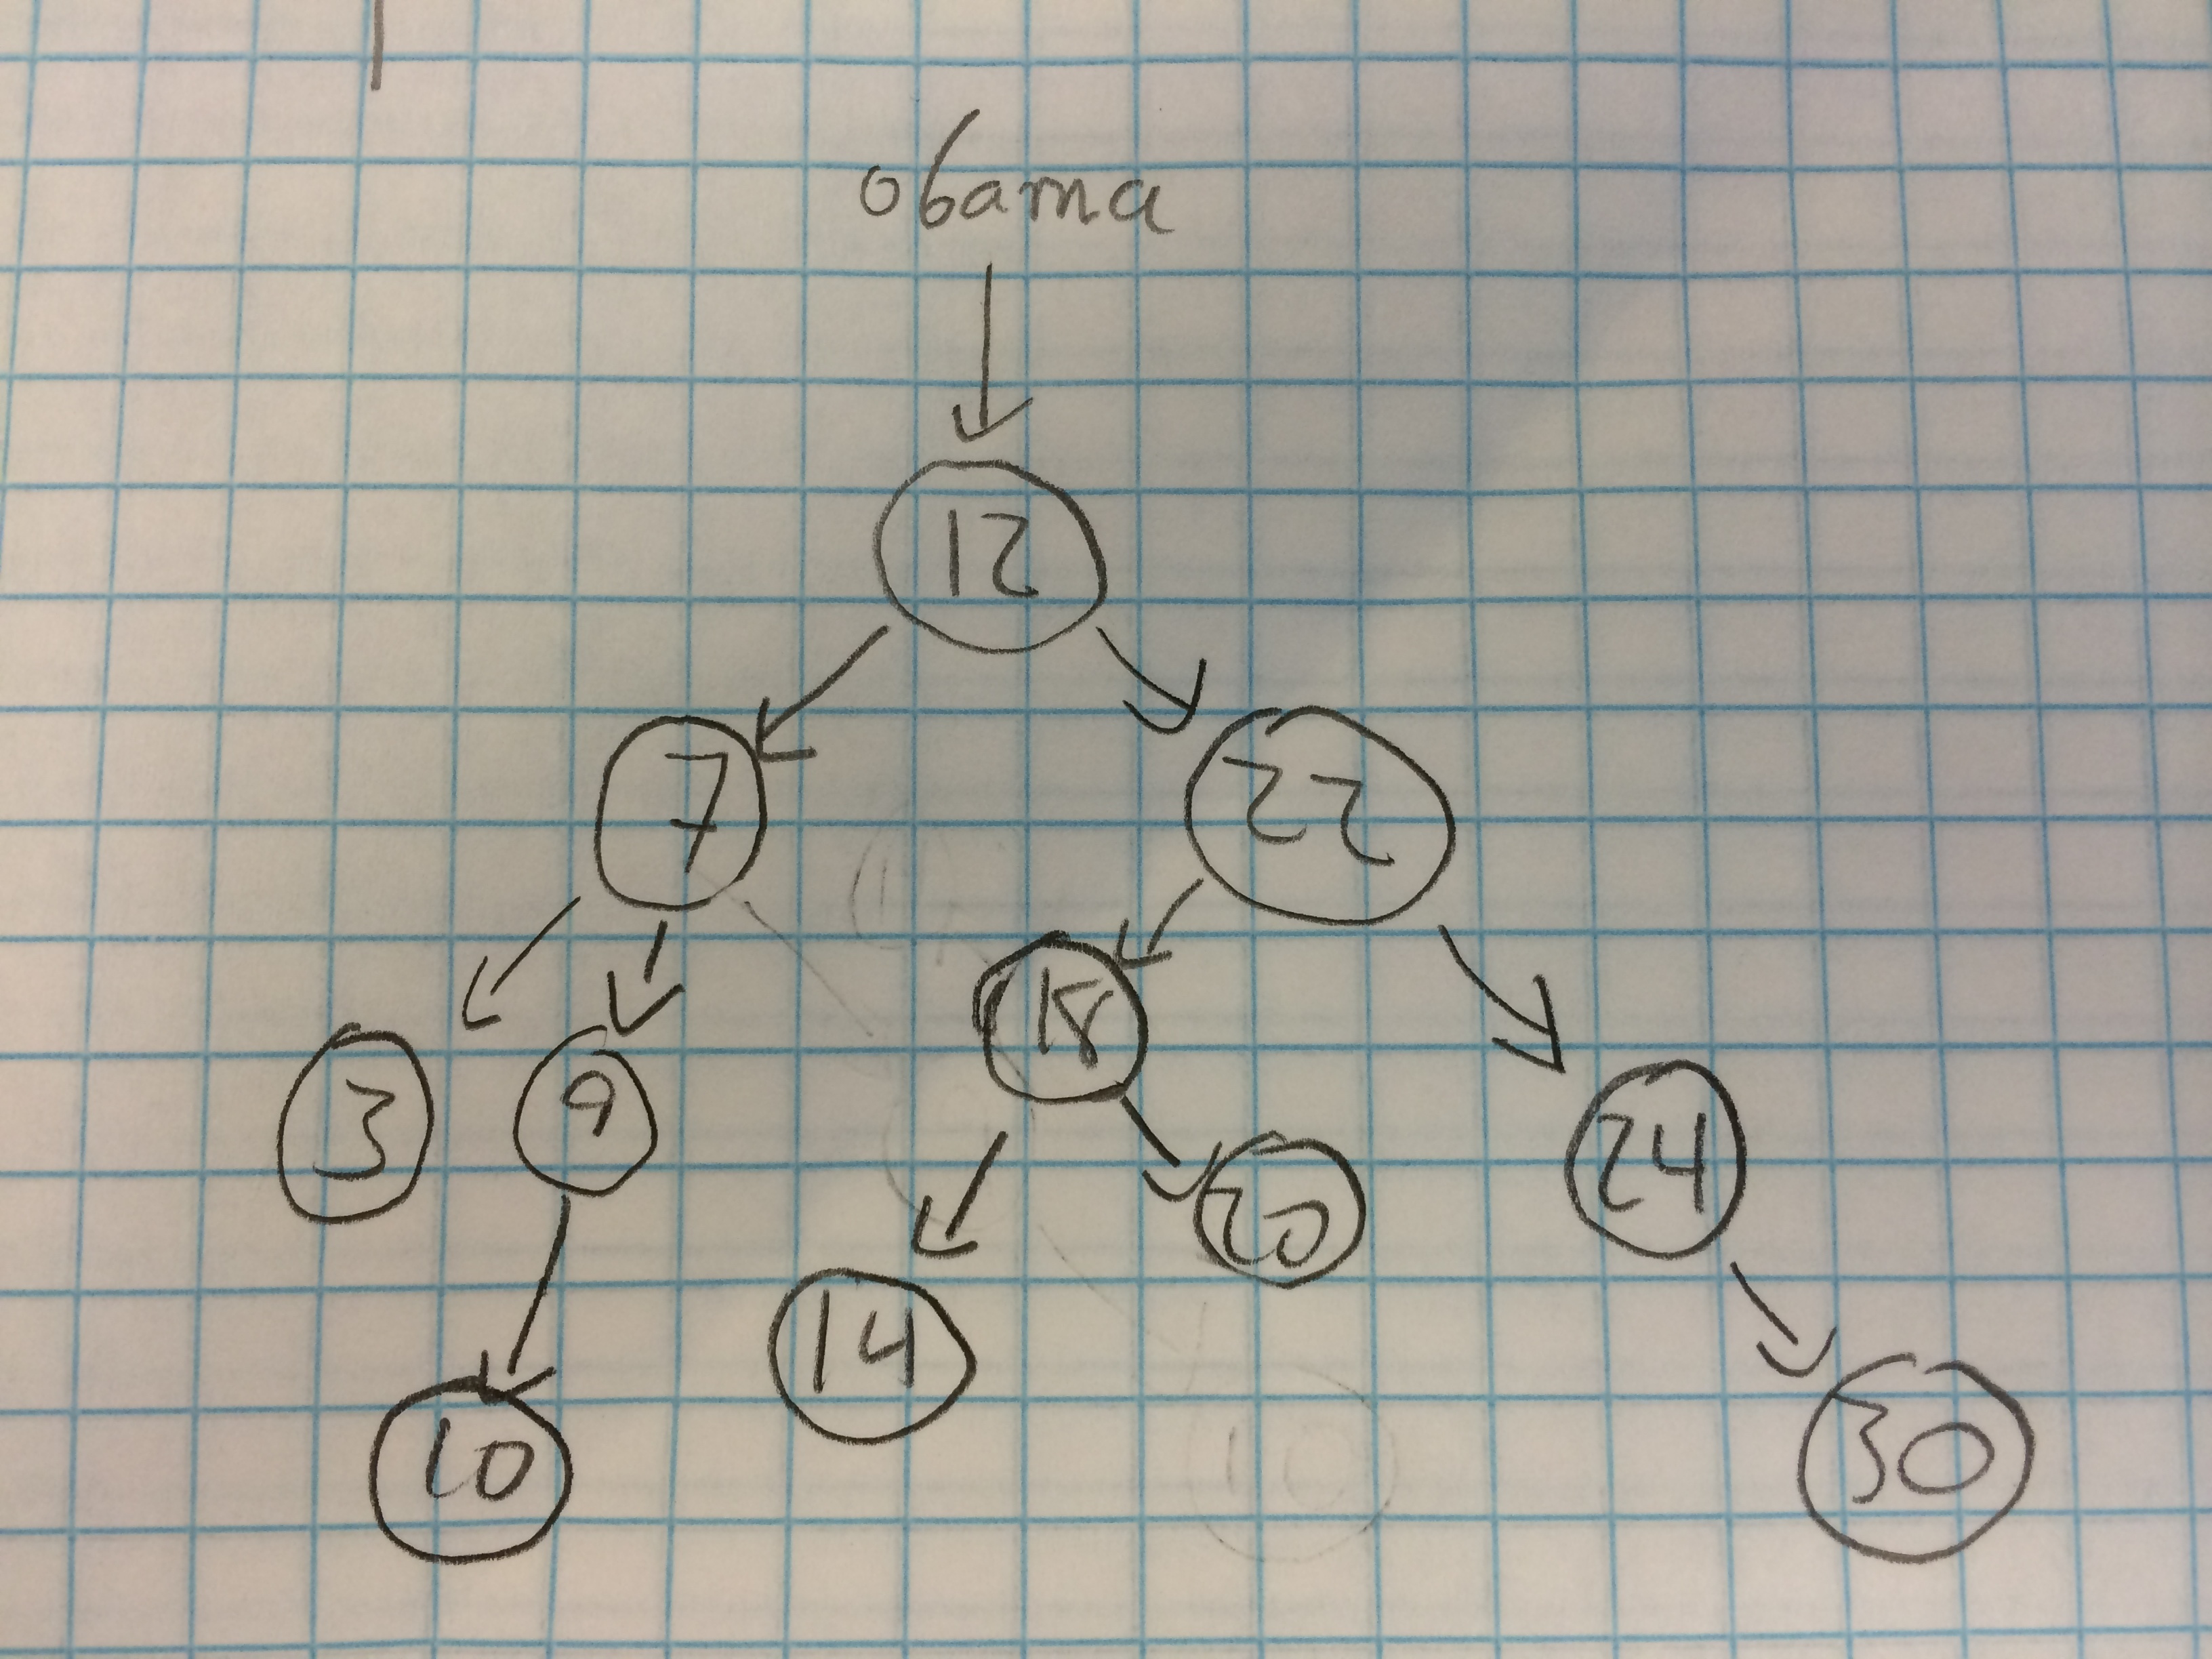 obama
12
7 22
3 9 18 24
14 20
10 30